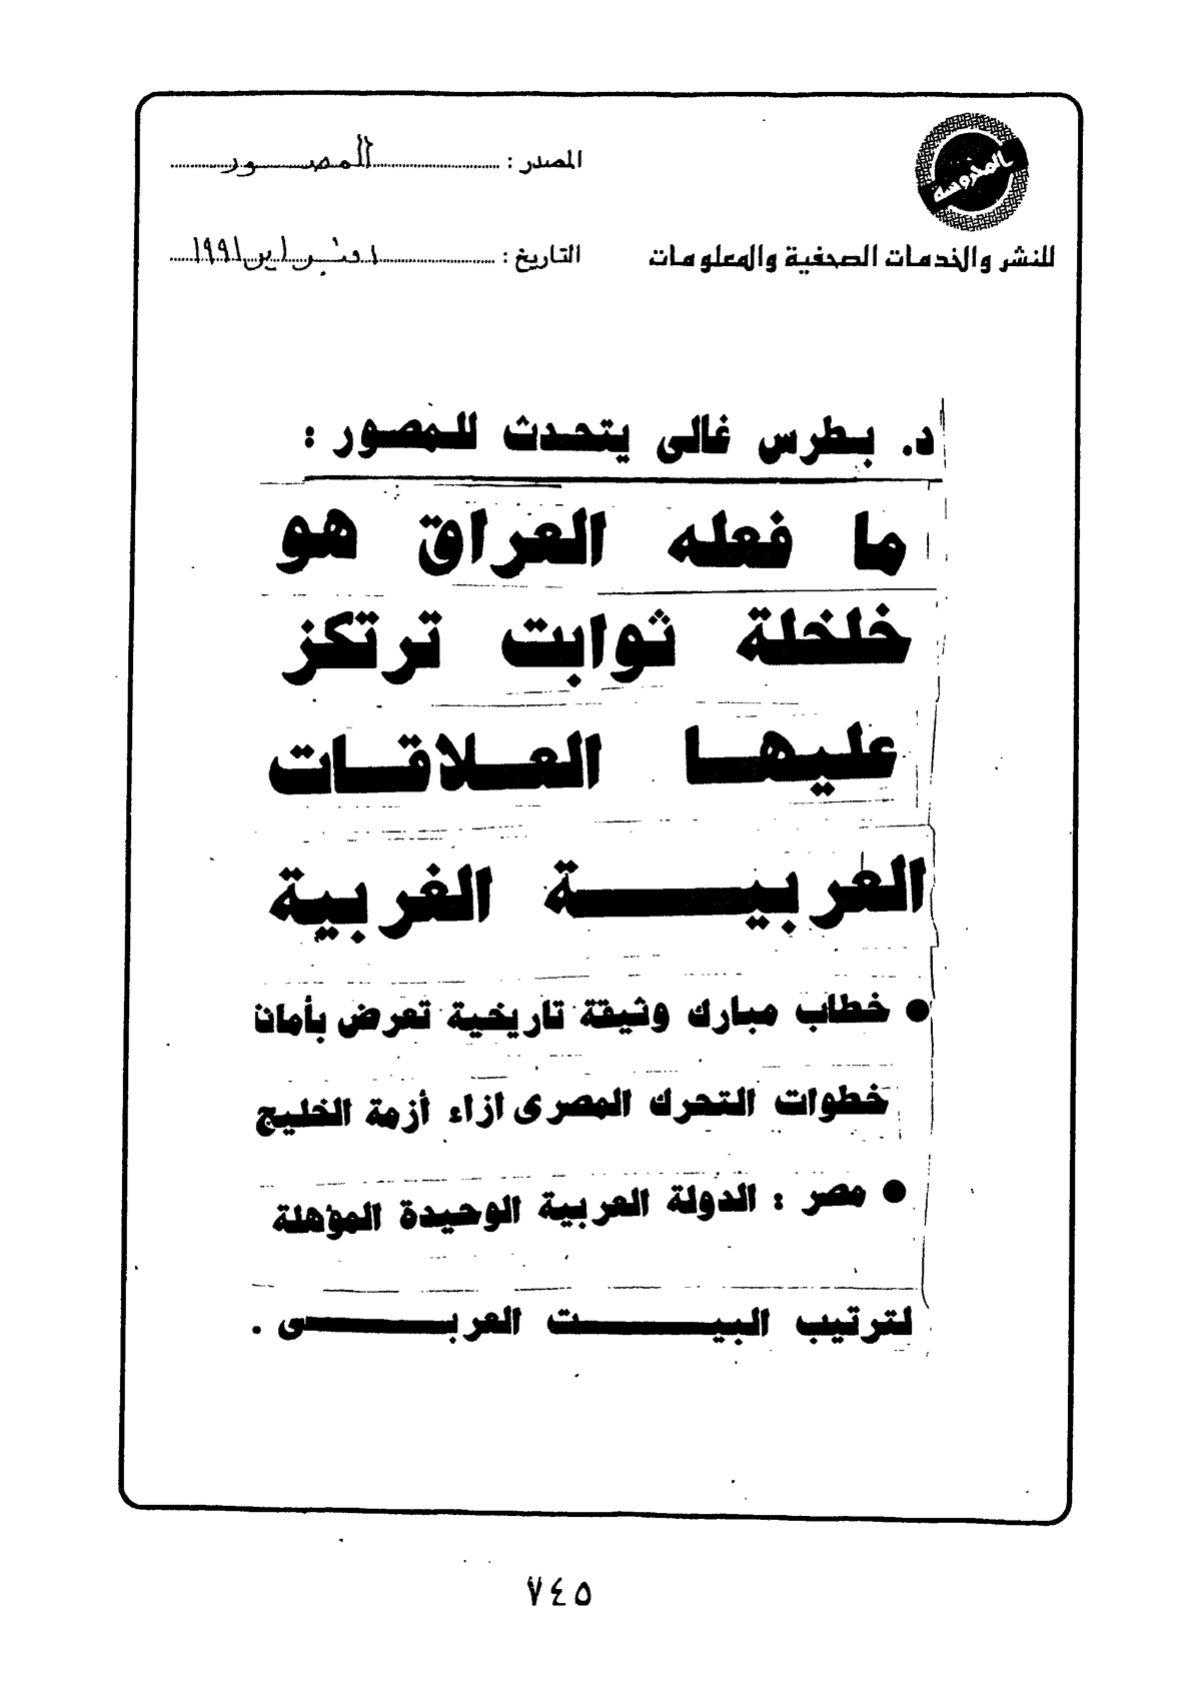 المحروسة
المصدر : المصور
للنشر والخدمات الصحفية والمعلومات
التاريخ : ١ فبراير ١٩٩١
د. بطرس غالى يتحدث للمصور :
ما فعله العراق هو
خلخلة ثوابت ترتكز
عليها العلاقات
العربية الغربية
● خطاب مبارك وثيقة تاريخية تعرض بأمان
خطوات التحرك المصرى ازاء أزمة الخليج
● مصر : الدولة العربية الوحيدة المؤهلة
لترتيب البيت العربى .
٧٤٥